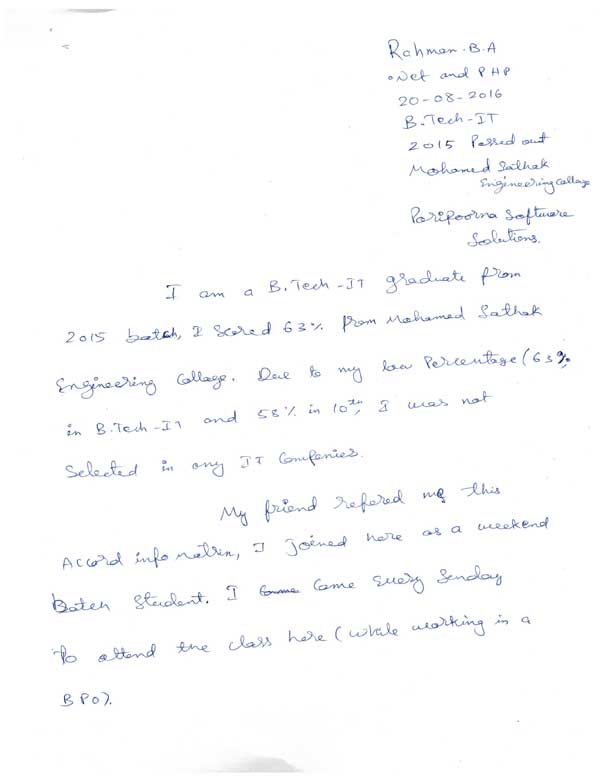 Rahman.B.A
.Net and PHP
20-08-2016
B.Tech-IT
2015 Passed out
Mohamed Sathak
Engineering Collage
Paripoorna Software
Solutions.
I am a B.Tech-IT graduate from
2015 batch, I Scored 63% from Mohamed Sathak
Engineering Collage. Due to my low Percentage (63%
in B.Tech-IT and 58% in 10th, I was not
Selected in any IT Companies.
My friend refered me this
Accord info matrix, I joined here as a weekend
Batch Student. I Came Every Sunday
To attend the class here (while working in a
BPO).